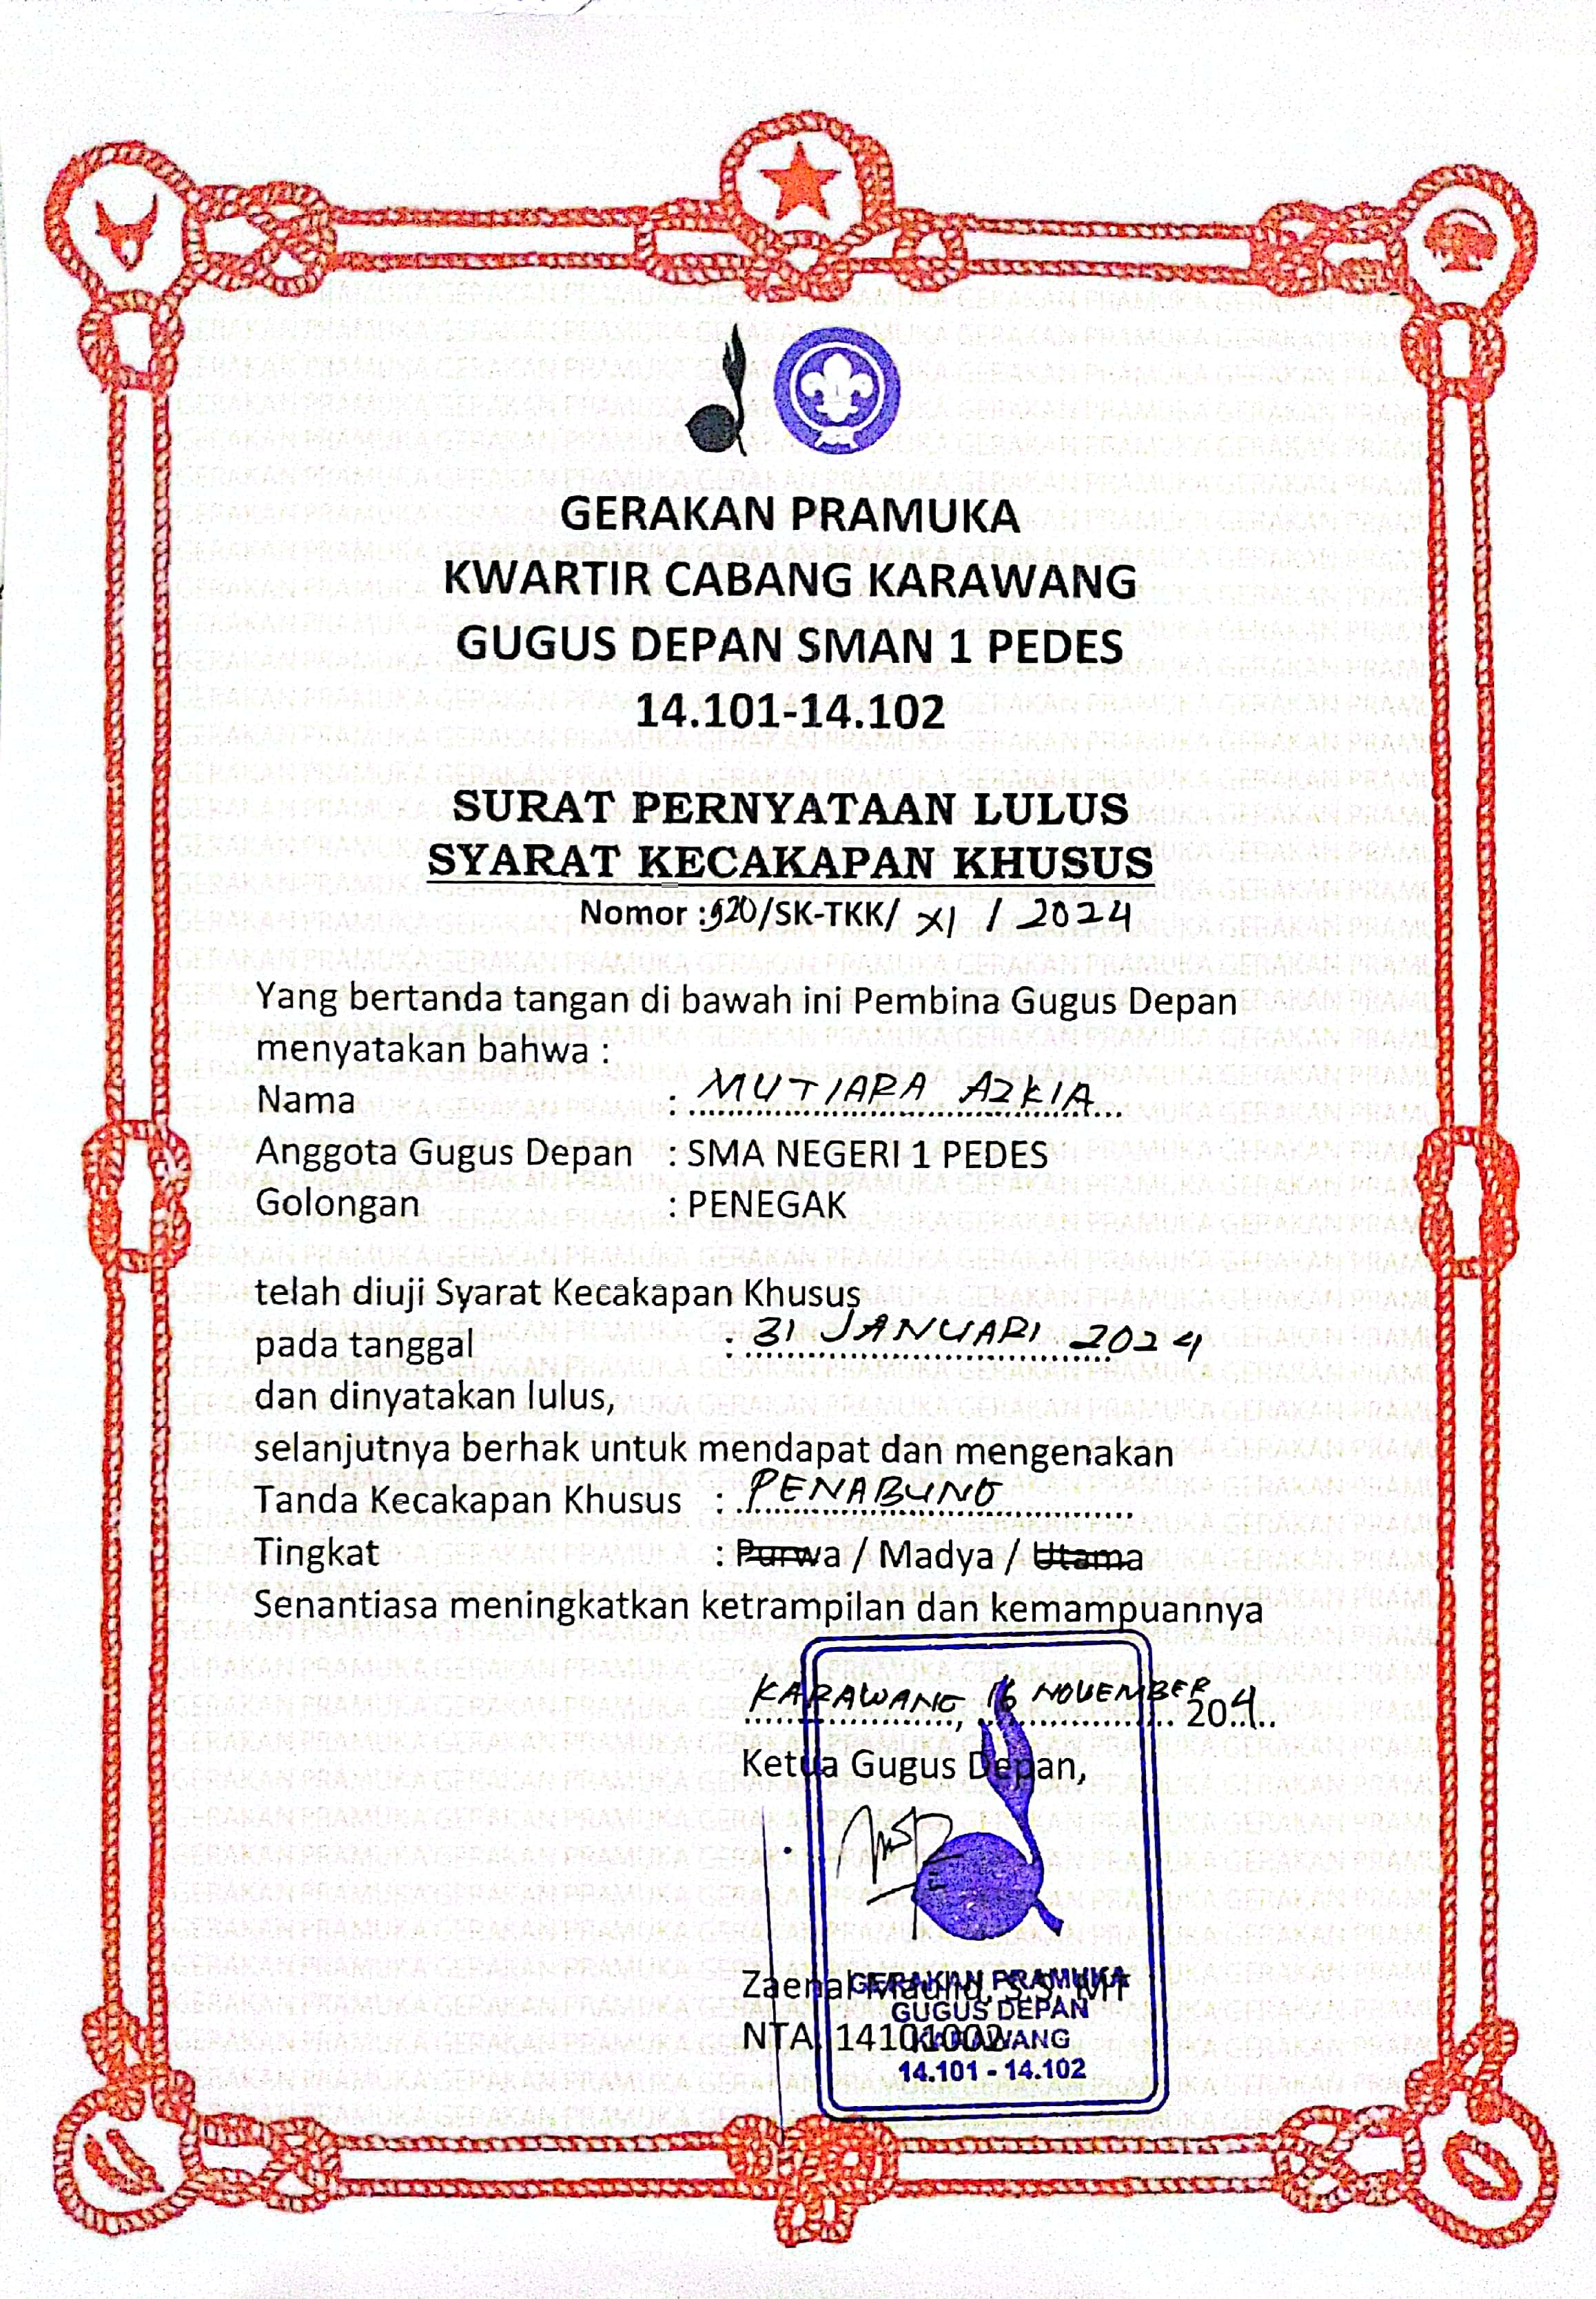 GERAKAN PRAMUKA
KWARTIR CABANG KARAWANG
GUGUS DEPAN SMAN 1 PEDES
14.101-14.102
SURAT PERNYATAAN LULUS
SYARAT KECAKAPAN KHUSUS
Nomor : 520/SK-TKK/ XI / 2024
Yang bertanda tangan di bawah ini Pembina Gugus Depan
menyatakan bahwa :
Nama : MUTIARA AZKIA
Anggota Gugus Depan : SMA NEGERI 1 PEDES
Golongan : PENEGAK
telah diuji Syarat Kecakapan Khusus
pada tanggal : 31 JANUARI 2024
dan dinyatakan lulus,
selanjutnya berhak untuk mendapat dan mengenakan
Tanda Kecakapan Khusus : PENABUNG
Tingkat : Purwa / Madya / Utama
Senantiasa meningkatkan ketrampilan dan kemampuannya
KARAWANG, 16 NOVEMBER 204
Ketua Gugus Depan,
Zaenal Maulid, S.S, MT
NTA. 14101002
GERAKAN PRAMUKA
GUGUS DEPAN
KARAWANG
14.101 - 14.102